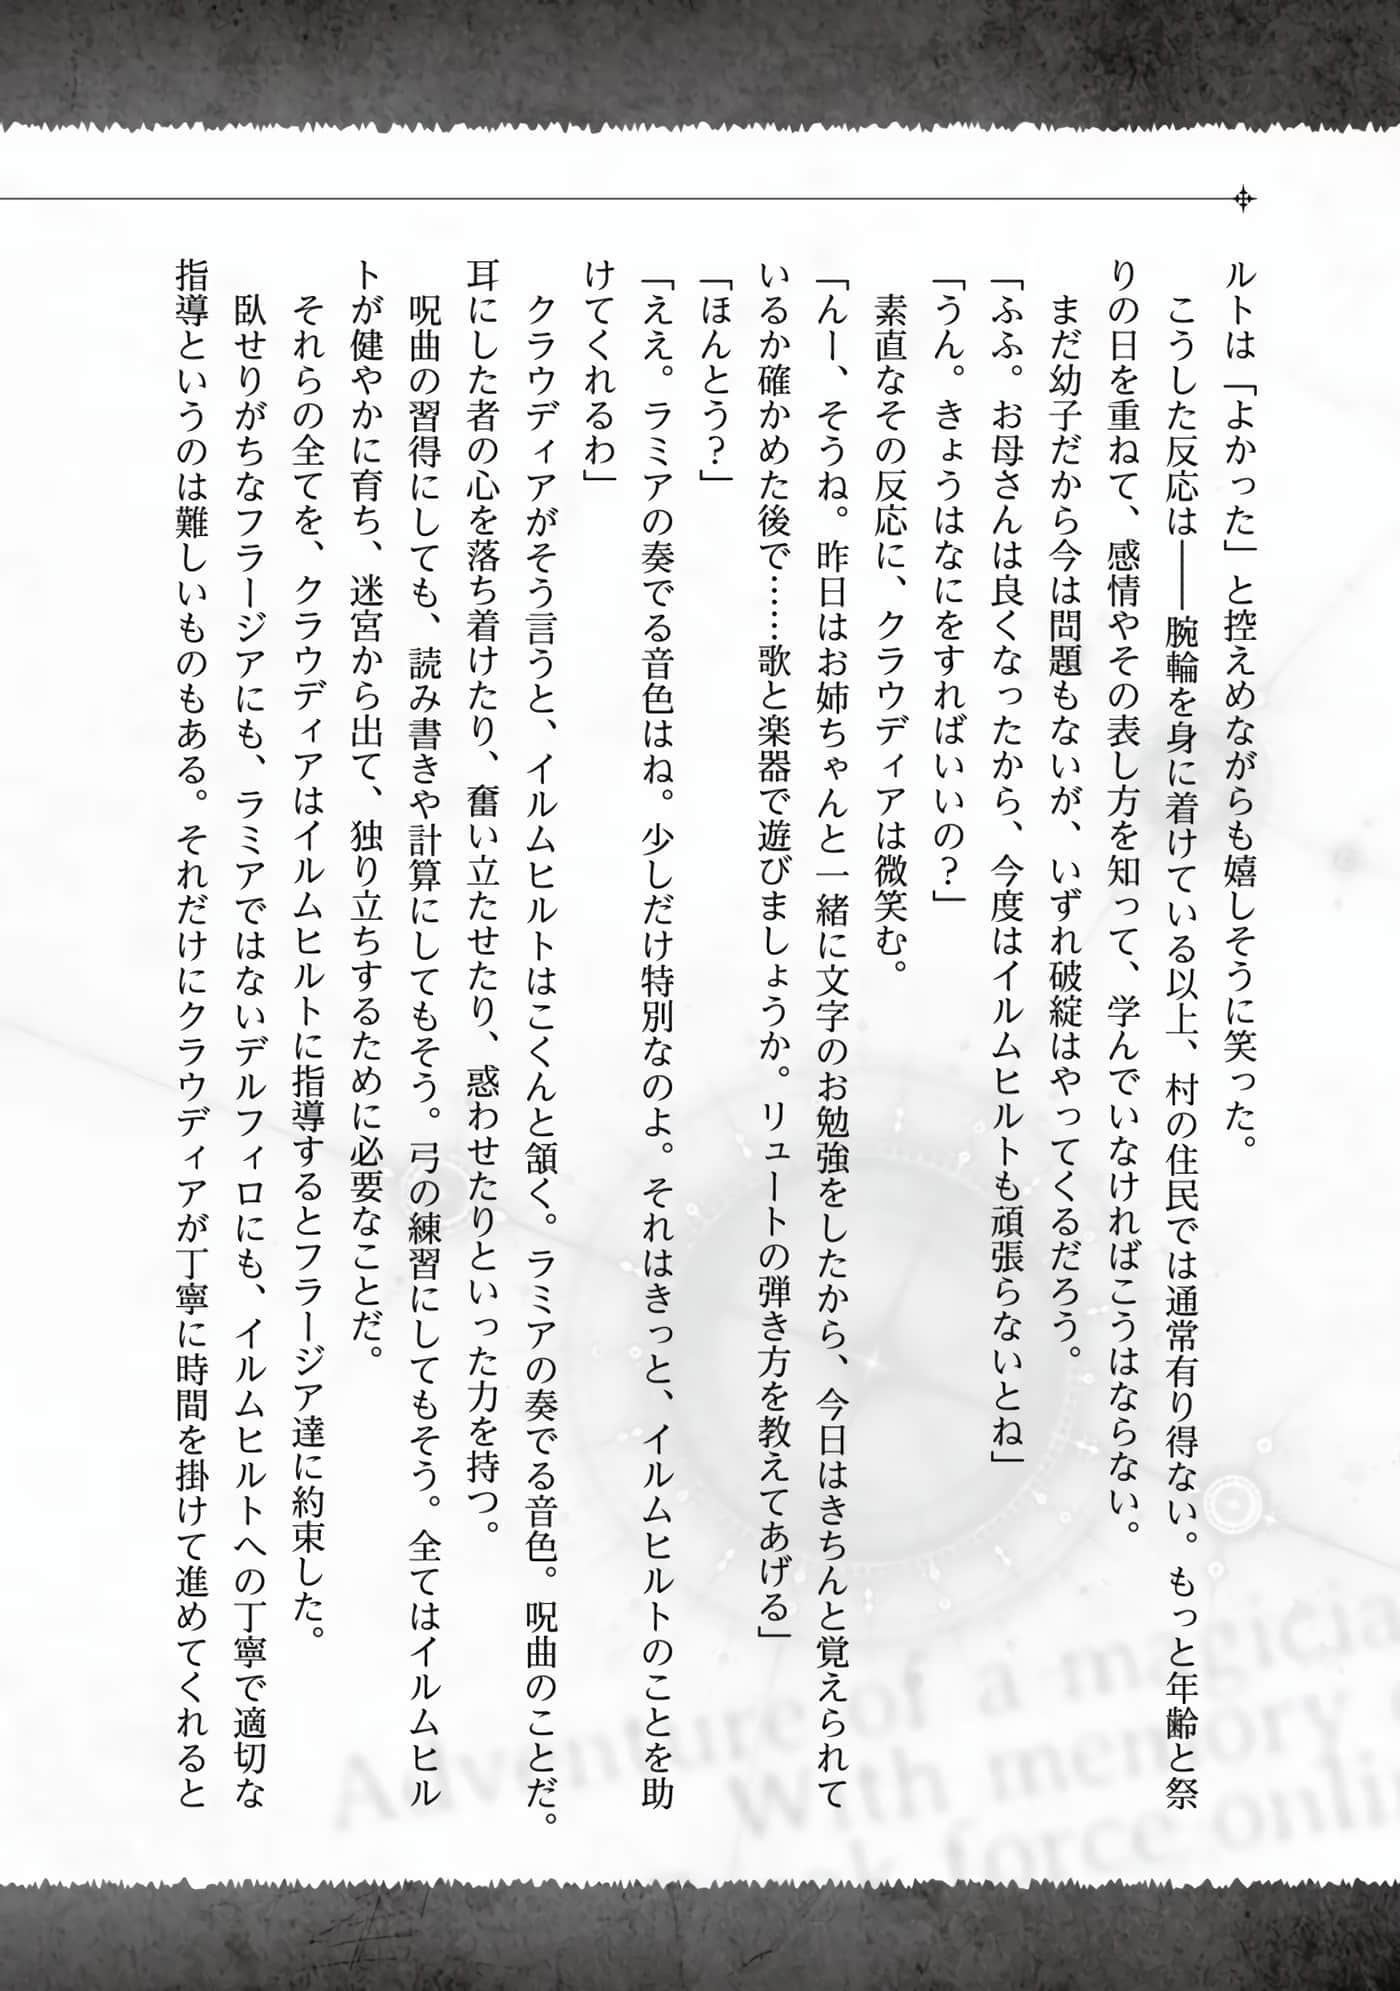 ルトは「よかった」と控えめながらも嬉しそうに笑った。
こうした反応は――腕輪を身に着けている以上、村の住民では通常有り得ない。もっと年齢と祭
りの日を重ねて、感情やその表し方を知って、学んでいなければこうはならない。
まだ幼子だから今は問題もないが、いずれ破綻はやってくるだろう。
「ふふ。お母さんは良くなったから、今度はイルムヒルトも頑張らないとね」
「うん。きょうはなにをすればいいの？」
素直なその反応に、クラウディアは微笑む。
「んー、そうね。昨日はお姉ちゃんと一緒に文字のお勉強をしたから、今日はきちんと覚えられて
いるか確かめた後で……歌と楽器で遊びましょうか。リュートの弾き方を教えてあげる」
「ほんとう？」
「ええ。ラミアの奏でる音色はね。少しだけ特別なのよ。それはきっと、イルムヒルトのことを助
けてくれるわ」
クラウディアがそう言うと、イルムヒルトはこくんと頷く。ラミアの奏でる音色。呪曲のことだ。
耳にした者の心を落ち着けたり、奮い立たせたり、惑わせたりといった力を持つ。
呪曲の習得にしても、読み書きや計算にしてもそう。弓の練習にしてもそう。全てはイルムヒル
トが健やかに育ち、迷宮から出て、独り立ちするために必要なことだ。
それらの全てを、クラウディアはイルムヒルトに指導するとフラージア達に約束した。
臥せりがちなフラージアにも、ラミアではないデルフィロにも、イルムヒルトへの丁寧で適切な
指導というのは難しいものもある。それだけにクラウディアが丁寧に時間を掛けて進めてくれると
Adventure of a magicia
With memory
force onli